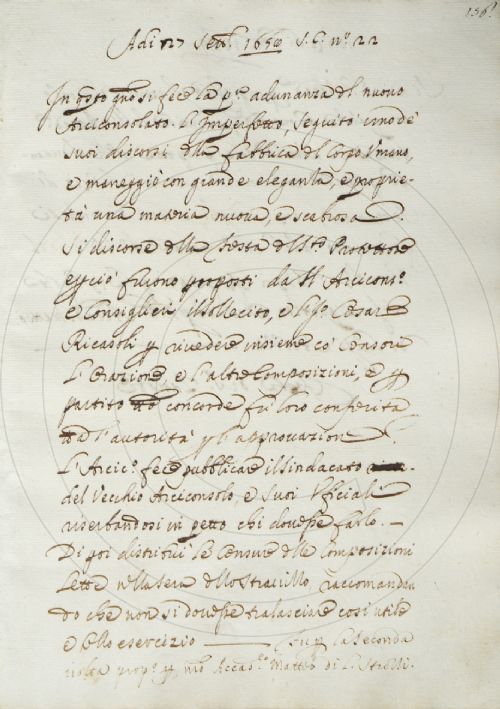 156.
Adi 27 Sett. 1650 S. C. nº. 22
In qsto gno si fece la pª. adunanza del nuovo
Arciconsolato. L'Imperfetto, seguitò uno de
suoi discorsi della fabbrica del Corpo Umano,
e maneggiò con grande eleganza, e proprie-
tà una materia nuova, e scabrosa.
Si discorse della festa del Sto. Protettore
e perciò furono proposti da Sl. Arcicons.º
e Consiglieri il Sollecito, e il Sg. Cesare
Ricasoli p rivedere insieme co' Censori
L'Orazione e l'altre Composizioni, e p
partito concorde fu loro conferita
l'autorità p l'approvazione.
L'Arcic.º fece pubblicare il Sindacato
del Vecchio Arciconsolo, e suoi Ufficiali
riserbandosi in petto chi dovesse farlo. —
Di poi distribuì le Censure delle Composizioni
Lette nella sera dello Stravizzo, raccomandan
do che non si dovesse tralasciare così utile
e bello esercizio ——— Fu p la seconda
volta prop.º p nro Accad.º Matteo di L. Strozzi.